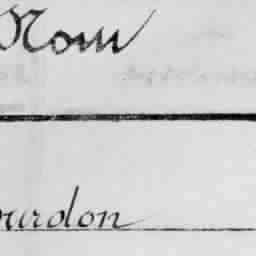 Nom
ourdon